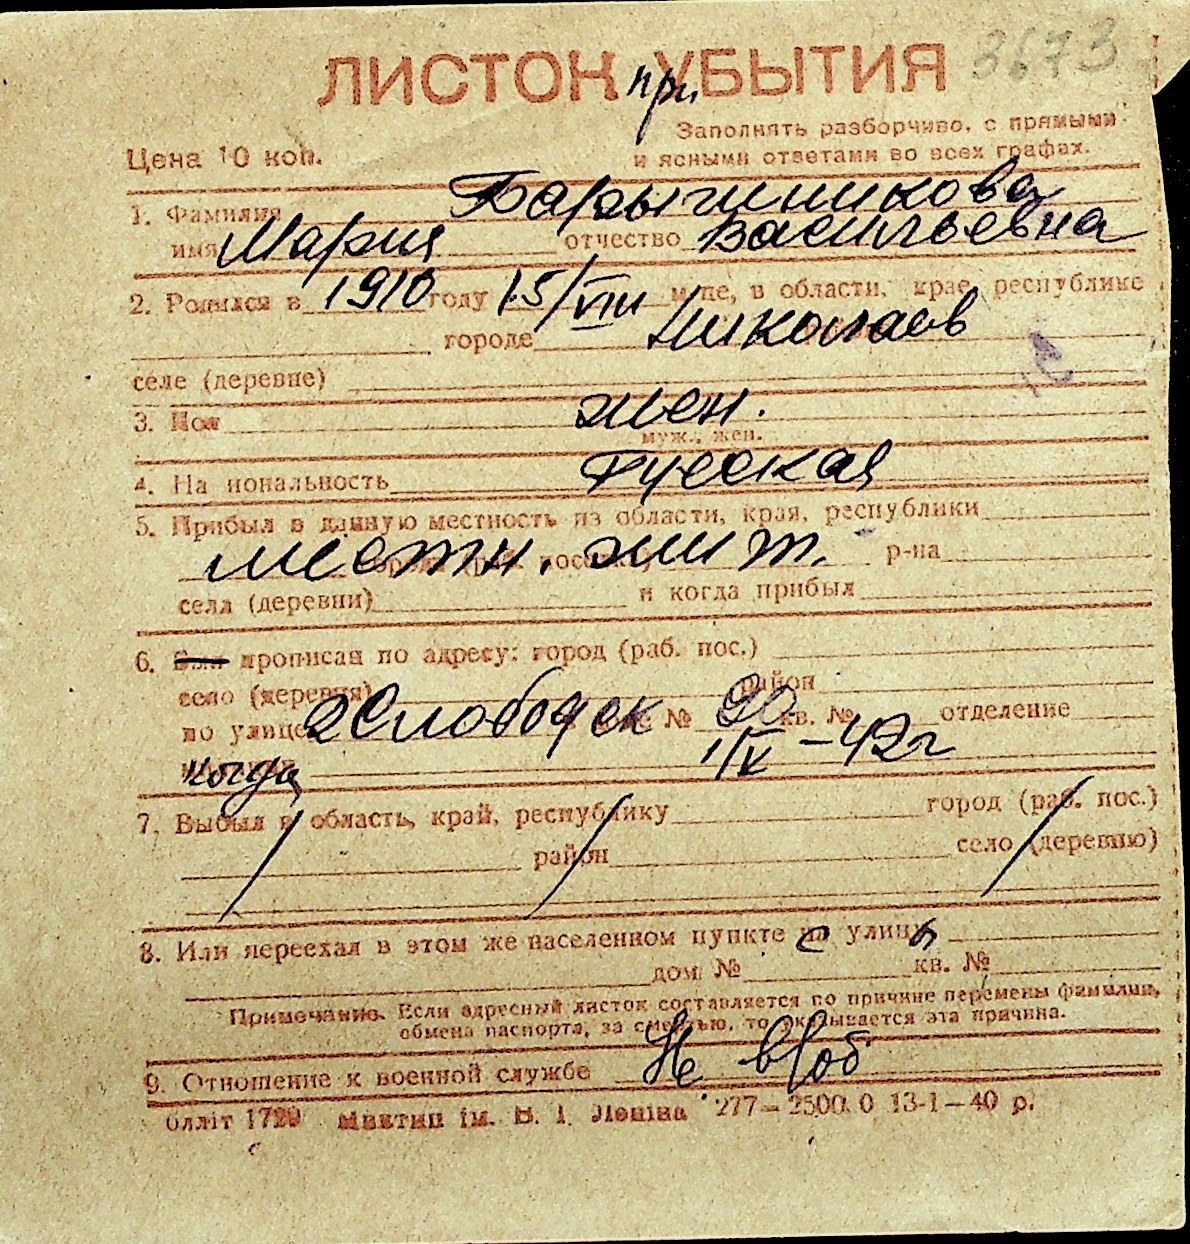 3673
ЛИСТОК при УБЫТИЯ
Заполнять разборчиво, с прямыми
Цена 10 коп.
и ясными ответами во всех графах.
1. Фамилия Барышникова
имя Мария отчество Васильевна
2. Родился в 1910 году 15/VIII м-це, в области, крае, республике
городе Николаев
селе (деревне)
3. Пол жен.
муж., жен.
4. Национальность Русская
5. Прибыл в данную местность из области, края, республики
местн. жит. р-на
села (деревни) и когда прибыл
6. Был прописан по адресу: город (раб. пос.)
село (деревня) район
по улице 2 Слободск № 90 кв. № отделение
когда 1/V-42 г
7. Выбыл в область, край, республику город (раб. пос.)
район село (деревню)
8. Или переехал в этом же населенном пункте с улицы
дом № кв. №
Примечание. Если адресный листок составляется по причине перемены фамилии,
обмена паспорта, за смертью, то указывается эта причина.
9. Отношение к военной службе Не в/об
Оллiт Миктип iм. В. I. Ленiна 277—2500.0 13-1—40 р.